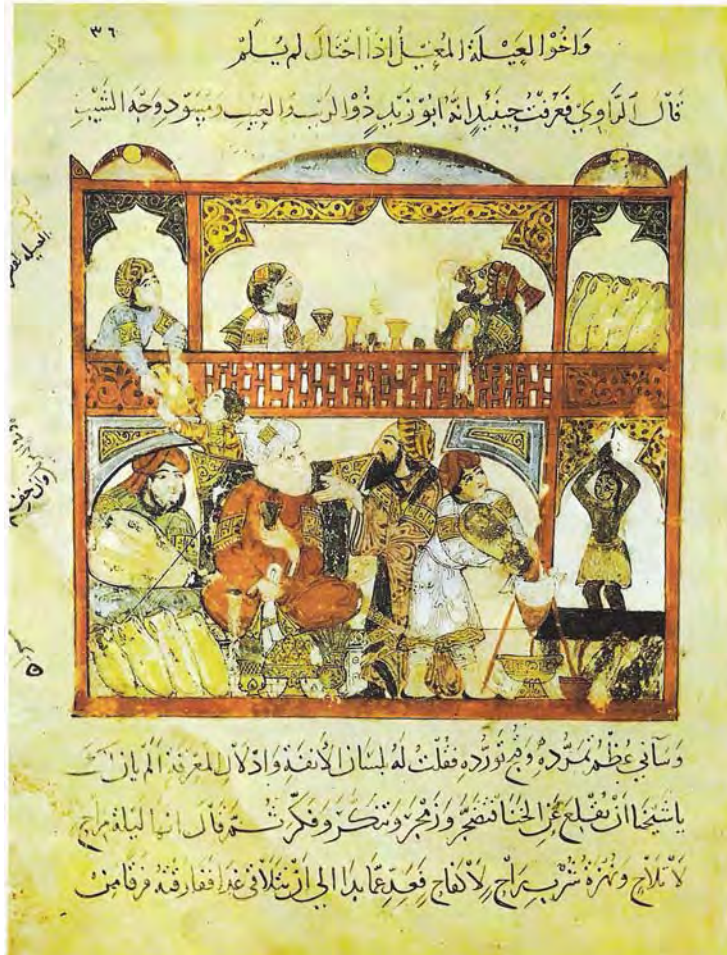 ٣٦
وَاخُوْا لعَيْلَة المُعِيْلُ اِذَا احْتَالَ لم يُلَمّ
قَالَ الرَّاوِي فَعَرَفْتُ حِينَئِذٍ انه ابُوْ زيْدٍ ذُوْ الرَيْب والعَيبِ ومُسَوّد وَجْه الشَيْبِ
وَسَآنِي عُظْمُ تَمَرُّدِهِ وَقُبْح تورُّدِهِ فَقُلْتُ لهُ بِلسَان الاَنفَة وَادْلاَل المَعْرِفَة اَلَم يَانِ لَكَ
يا شَيْخنا اَنْ تُقْلِع عَنِ الخَنَا فَتَضَجَّرَ وَزَمْجَرَ وَتنكّرَ وَفكّر ثُمَّ قَالَ انها ليلَة مِرَاحٍ
لاَ تَلاَحٍ وَنُهْزَةُ شُرْبِ رَاحٍ لاَ كِفَاحٍ فَعَدِّ عَمَّا بَدَا الى اَنْ نَتَلاَقى غَدًا ففَارقتُهُ فَرَقًا مِنْ